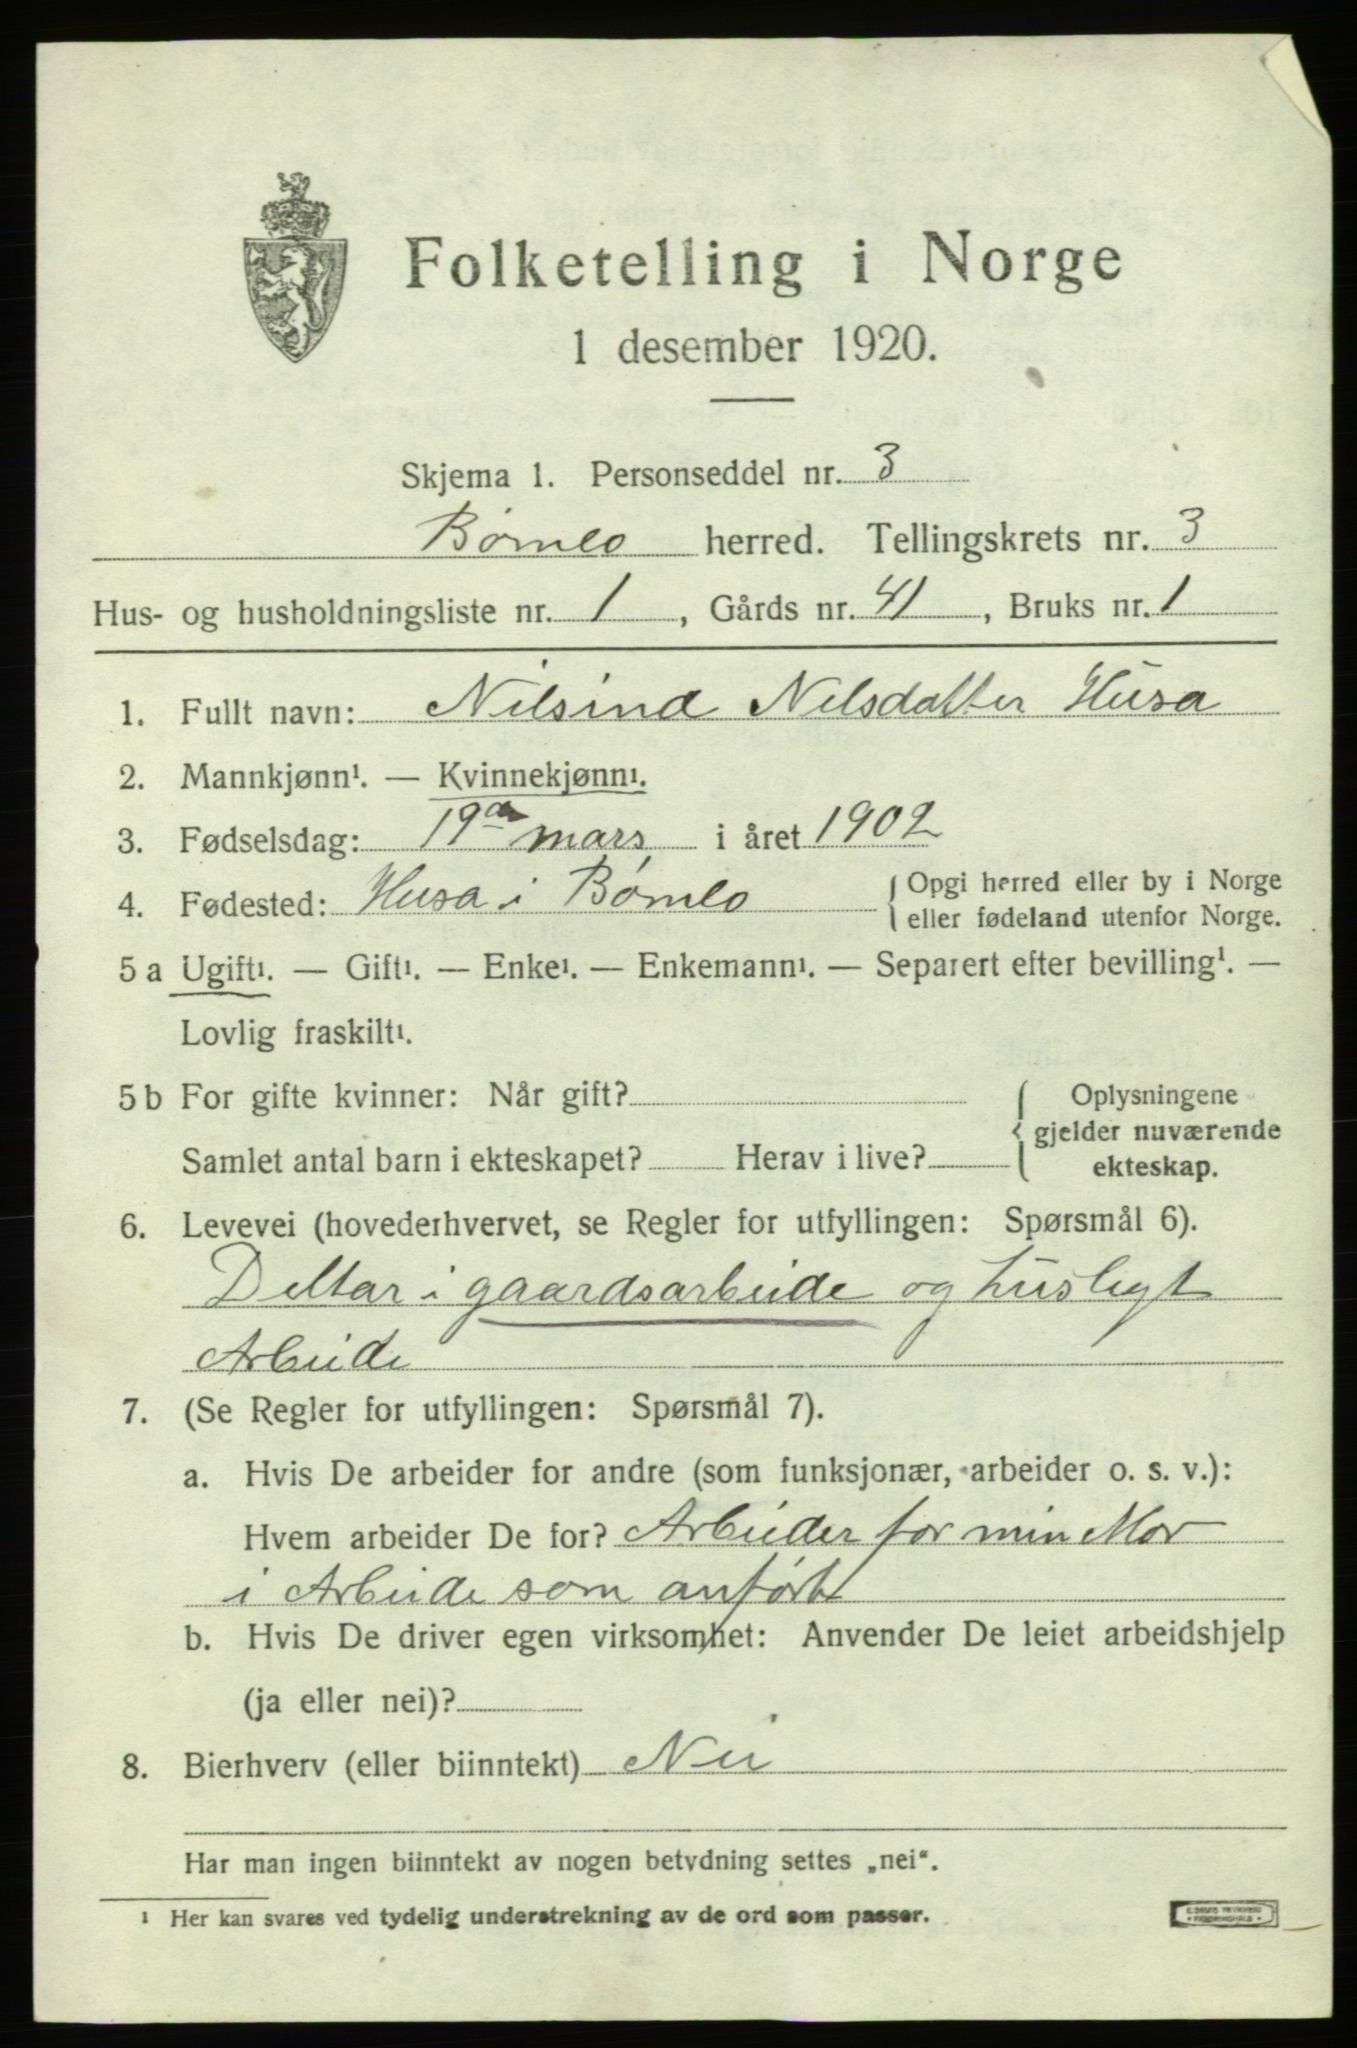 Folketelling i Norge
1 desember 1920.
Skjema 1. Personseddel nr. 3
Bømlo herred. Tellingskrets nr. 3
Hus- og husholdningsliste nr. 1, Gårds nr. 41, Bruks nr. 1
1. Fullt navn: Nilsine Nilsdatter Husa
2. Mannkjønn¹. — Kvinnekjønn¹.
3. Fødselsdag: 19de mars i året 1902
4. Fødested: Husa i Bømlo { Opgi herred eller by i Norge
eller fødeland utenfor Norge.
5 a Ugift¹. — Gift¹. — Enke¹. — Enkemann¹. — Separert efter bevilling¹. —
Lovlig fraskilt¹.
5 b For gifte kvinner: Når gift? { Oplysningene
gjelder nuværende
Samlet antal barn i ekteskapet? Herav i live? ekteskap.
6. Levevei (hovederhvervet, se Regler for utfyllingen: Spørsmål 6).
Deltar i gaardsarbeide og husligt
Arbeide
7. (Se Regler for utfyllingen: Spørsmål 7).
a. Hvis De arbeider for andre (som funksjonær, arbeider o. s. v.):
Hvem arbeider De for? Arbeider for min Mor
i Arbeide som anført
b. Hvis De driver egen virksomhet: Anvender De leiet arbeidshjelp
(ja eller nei)?
8. Bierhverv (eller biinntekt) Nei
Har man ingen biinntekt av nogen betydning settes „nei“.
¹ Her kan svares ved tydelig understrekning av de ord som passer.